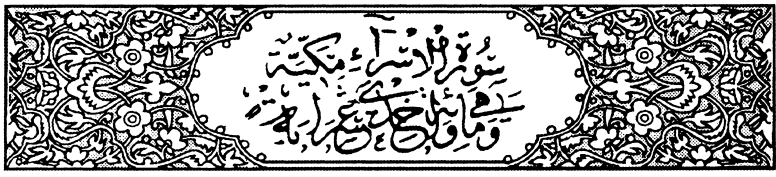 سُورَةُ الْإِسْرَاءِ مَكِّيَّة
وَهِيَ مِائَة وَإِحْدَى عَشَرَ آيَة